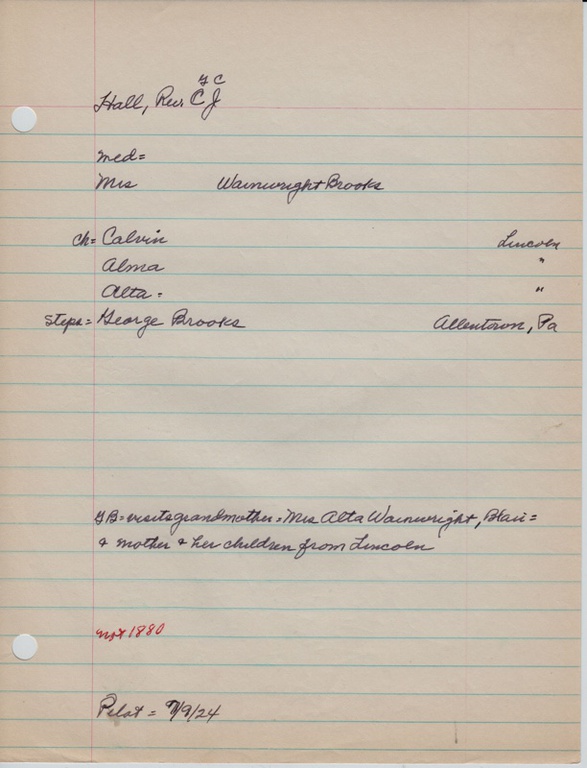 G C
Hall, Rev C J
med=
Mrs Wainwright Brooks
ch= Calvin Lincoln
Alma "
Alta= "
steps= George Brooks Allentown, Pa
GB=visits grandmother=Mrs Alta Wainwright, Blair=
& mother & her children from Lincoln
not 1880
Pilot = 7/9/24